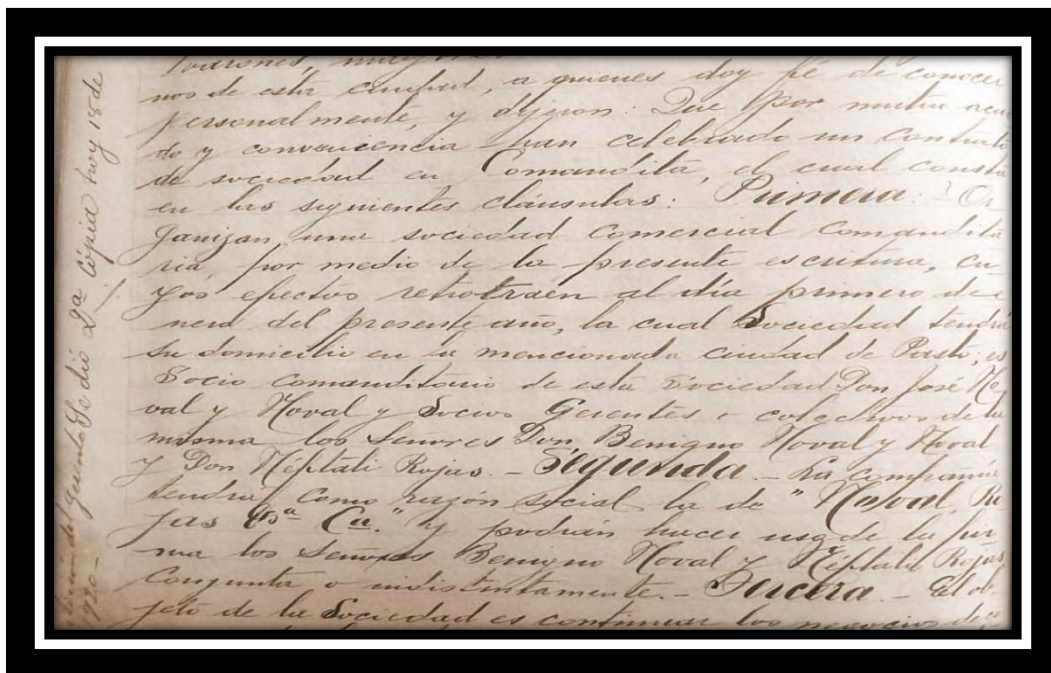 nos de esta ciudad, a quienes doy fé de conocer
personalmente, y dijeron: Que por mutuo acuer
do y conveniencia han celebrado un contrato
de sociedad en Comandita, el cual consta
en las siguientes clausulas: Primera: Or
ganizan, una sociedad Comercial Comandita
ria, por medio de la presente escritura, cu
yos efectos retrotraen al día primero de e
nero del presente año, la cual Sociedad tendrá
su domicilio en la mencionada ciudad de Pasto; es
Socio Comanditario de esta Sociedad Don José No
val y Noval y Socios Gerentes o colectivos de la
misma los Senores Don Benigno Noval y Noval
y Don Néptali Rojas. - Segunda. - La compañía
tendrá como razón social la de "Noval, Ro
jas & Cia." y podrán hacer uso de la fir
ma los Senores Benigno Noval y Néptali Rojas,
Conjunta o indistintamente. - Tercera. - El ob-
jeto de la Sociedad es continuar los negocios de
Se dió 2ª Cópia hoy 18 de
del gerente
1920-